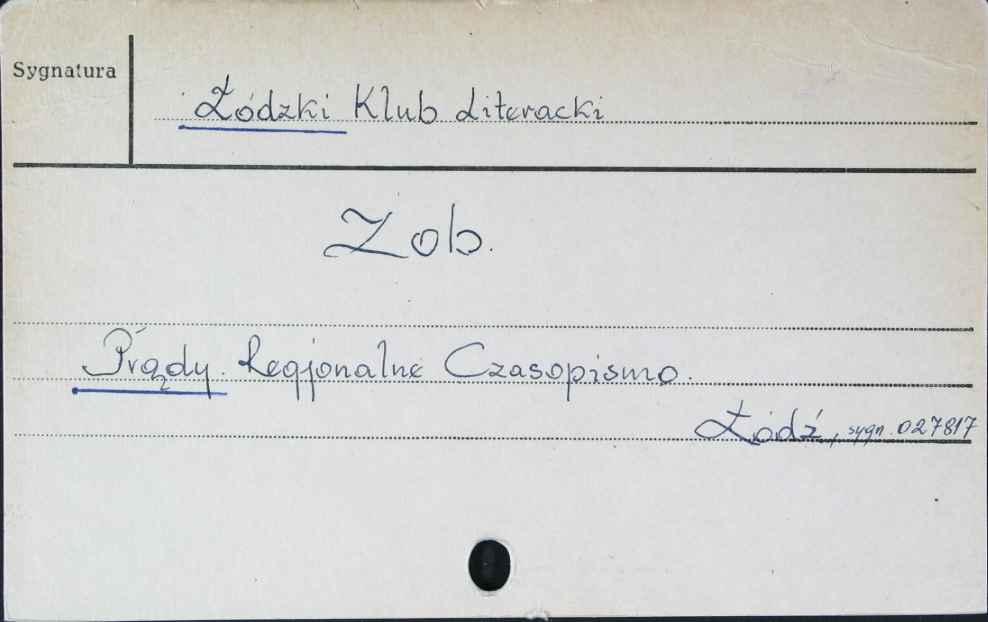 Sygnatura
Łódzki Klub Literacki
Zob.
Prądy. Regjonalne Czasopismo.
Łódź, sygn. 027817